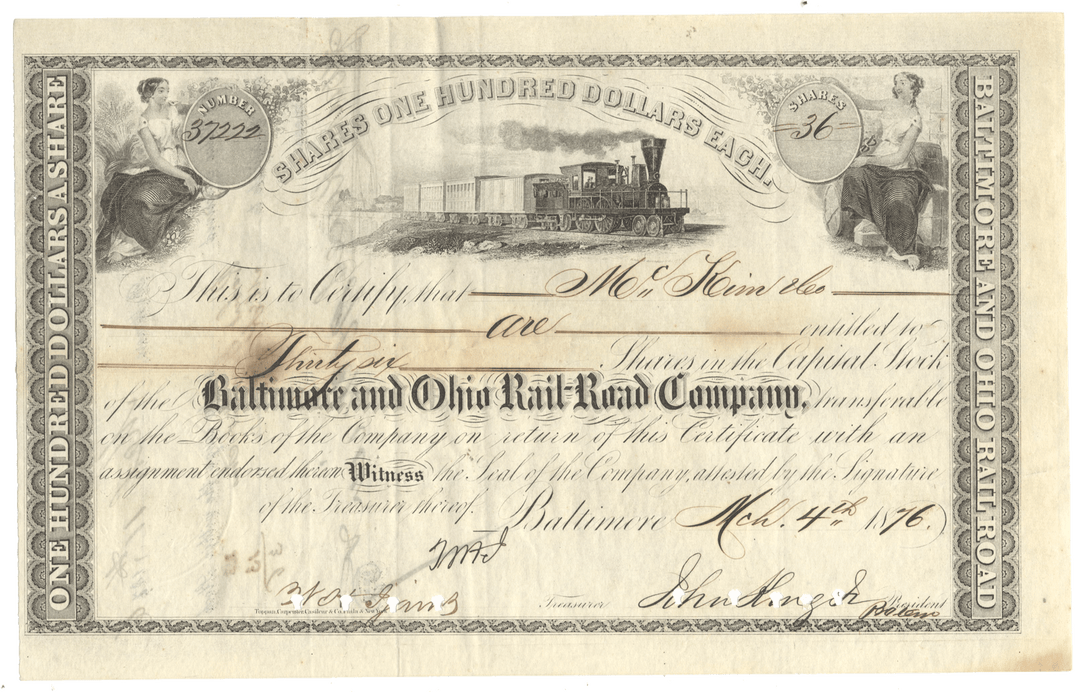 NUMBER
37222
SHARES ONE HUNDRED DOLLARS EACH.
SHARES
36
ONE HUNDRED DOLLARS A SHARE
BALTIMORE AND OHIO RAIL ROAD
This is to Certify, that McKim & Co
are entitled to
Thirty six Shares in the Capital Stock
of the Baltimore and Ohio Rail-Road Company, transferable
on the Books of the Company on return of this Certificate with an
assignment endorsed thereon Witness the Seal of the Company, attested by the Signature
of the Treasurer thereof. Baltimore Mch. 4th 1876.
Treasurer John King Jr President
Toppan, Carpenter, Casilear & Co.